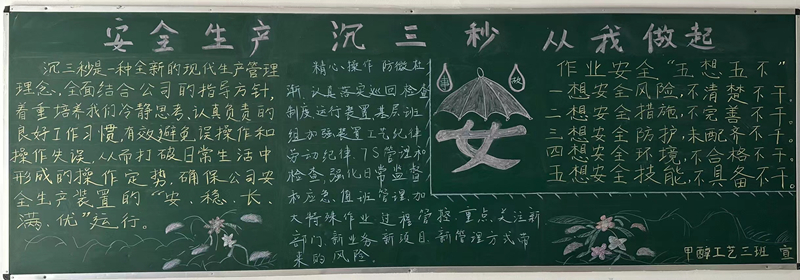 安全生产 沉三秒 从我做起
沉三秒是一种全新的现代生产管理
理念,全面结合公司的指导方针,
着重培养我们冷静思考,认真负责的
良好工作习惯,有效避免误操作和
操作失误,从而打破日常生活中
形成的操作定势,确保公司安
全生产装置的“安、稳、长、
满、优”运行。
精心操作 防微杜
渐,认真落实巡回检查
制度运行装置基层班
组加强装置工艺纪律
劳动纪律、7S管理和
检查,强化日常监督
和应急、值班管理,加
大特殊作业过程管控,重点关注新
部门、新业务新设目、新管理方式带
来的风险.
事
故
女
作业安全“五想五不”
一想安全风险,不清楚不干。
二想安全措施,不完善不干。
三想安全防护,未配齐不干。
四想安全环境,不合格不干。
五想安全技能,不具备不干。
甲醇工艺三班 宣